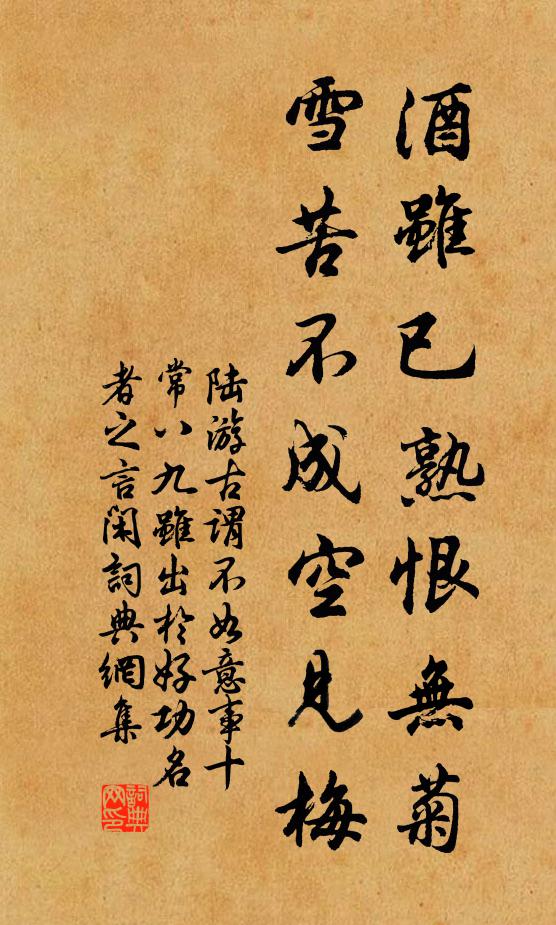 酒雖已熟恨無菊
雪苦不成空見梅
陆游古谓不如意事十
常八九雖出於好功名
者之言闲詞典網集
詞典網印